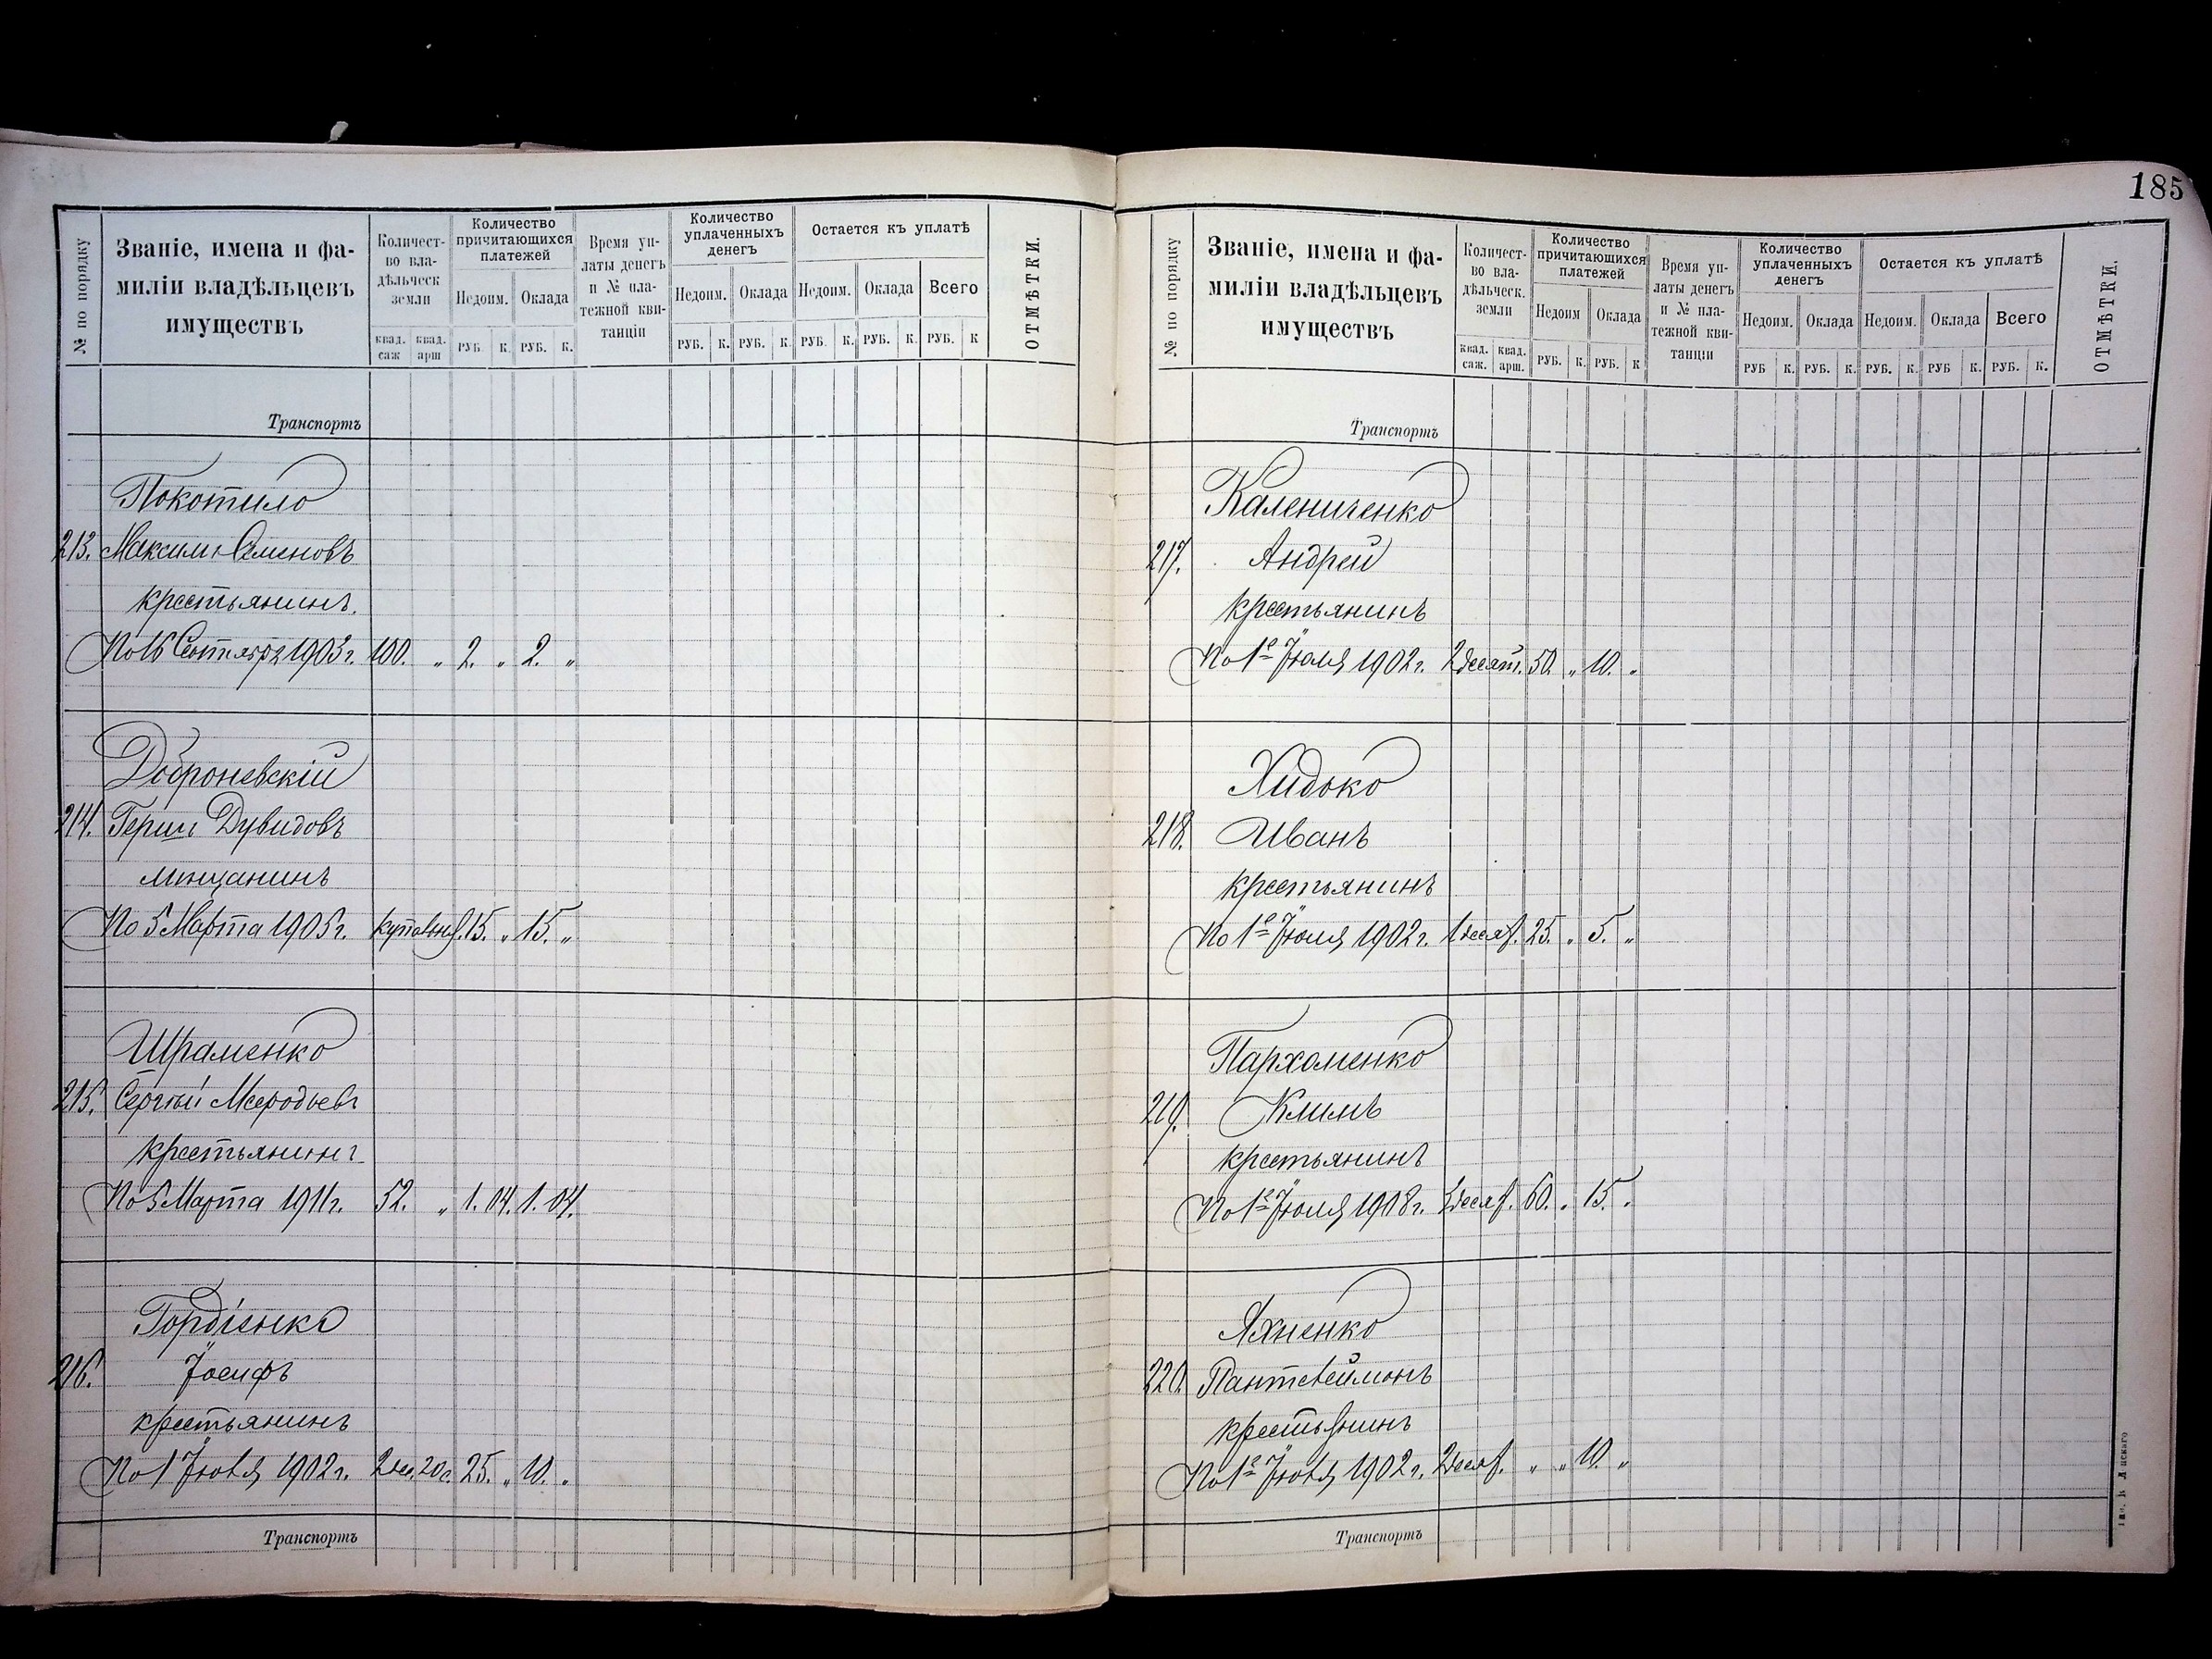 185
№ по порядку
Званіе, имена и фа-
миліи владѣльцевъ
имуществъ
Количест-
во вла-
дѣльческ
земли
квад. саж квад. арш
Количество
причитающихся
платежей
Недоим. Оклада
РУБ К. РУБ. К.
Время уп-
латы денегъ
и № пла-
тежной кви-
танціи
Количество
уплаченныхъ
денегъ
Недоим. Оклада
РУБ. К. РУБ. К.
Остается къ уплатѣ
Недоим. Оклада Всего
РУБ. К. РУБ. К. РУБ. К
ОТМѢТКИ.
Транспортъ
Покотило
213. Максимъ Семеновъ
крестьянинъ.
По 16 Сентября 1903 г. 100. „ 2. „ 2. „
Доброневскій
214. Гершъ Дувидовъ
мѣщанинъ
По 5 Марта 1905 г. 15. „ 15. „
Шраменко
215. Сергѣй
крестьянинъ
По 5 Марта 1911 г. 52. „ 1. 04. 1. 04.
Гордіенко
216. Іосифъ
крестьянинъ
По 1 Іюля 1902 г. 2 дес. 20 с. 25. „ 10. „
Транспортъ
№ по порядку
Званіе, имена и фа-
миліи владѣльцевъ
имуществъ
Количест-
во вла-
дѣльческ.
земли
квад. саж. квад. арш.
Количество
причитающихся
платежей
Недоим Оклада
РУБ. К. РУБ. К
Время уп-
латы денегъ
и № пла-
тежной кви-
танціи
Количество
уплаченныхъ
денегъ
Недоим. Оклада
РУБ К. РУБ. К.
Остается къ уплатѣ
Недоим. Оклада Всего
РУБ. К. РУБ К. РУБ. К.
ОТМѢТКИ.
Транспортъ
Калениченко
217. Андрей
крестьянинъ
По 1е Іюля 1902 г. 2 десят. 50. „ 10. „
Хидько
218. Иванъ
крестьянинъ
По 1е Іюля 1902 г. 1 десят. 25. „ 5. „
Пархоменко
219. Климъ
крестьянинъ
По 1е Іюля 1908 г. 3 десят. 60. „ 15. „
Яхненко
220. Пантелеймонъ
крестьянинъ
По 1е Іюля 1902 г. 2 десят. „ „ 10. „
Транспортъ